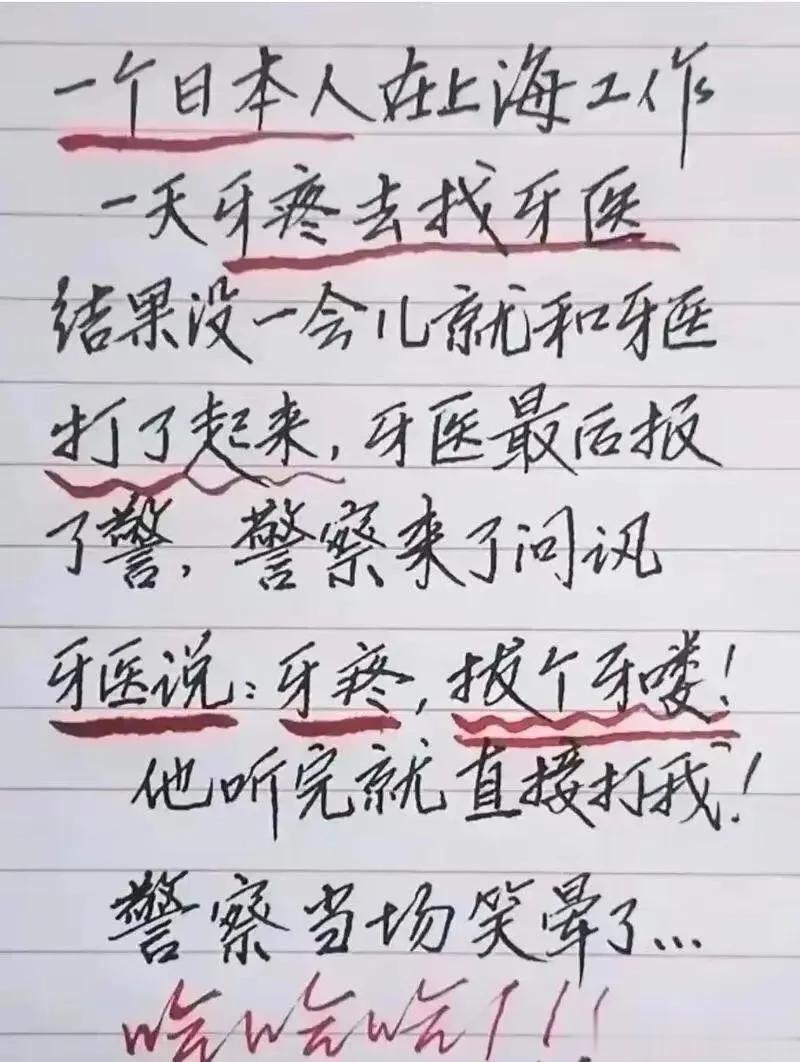 一个日本人在上海工作
一天牙疼去找牙医
结果没一会儿就和牙医
打了起来，牙医最后报
了警，警察来了问讯
牙医说：牙疼，拔个牙喽！
他听完就直接打我！
警察当场笑晕了…
哈哈哈！！！